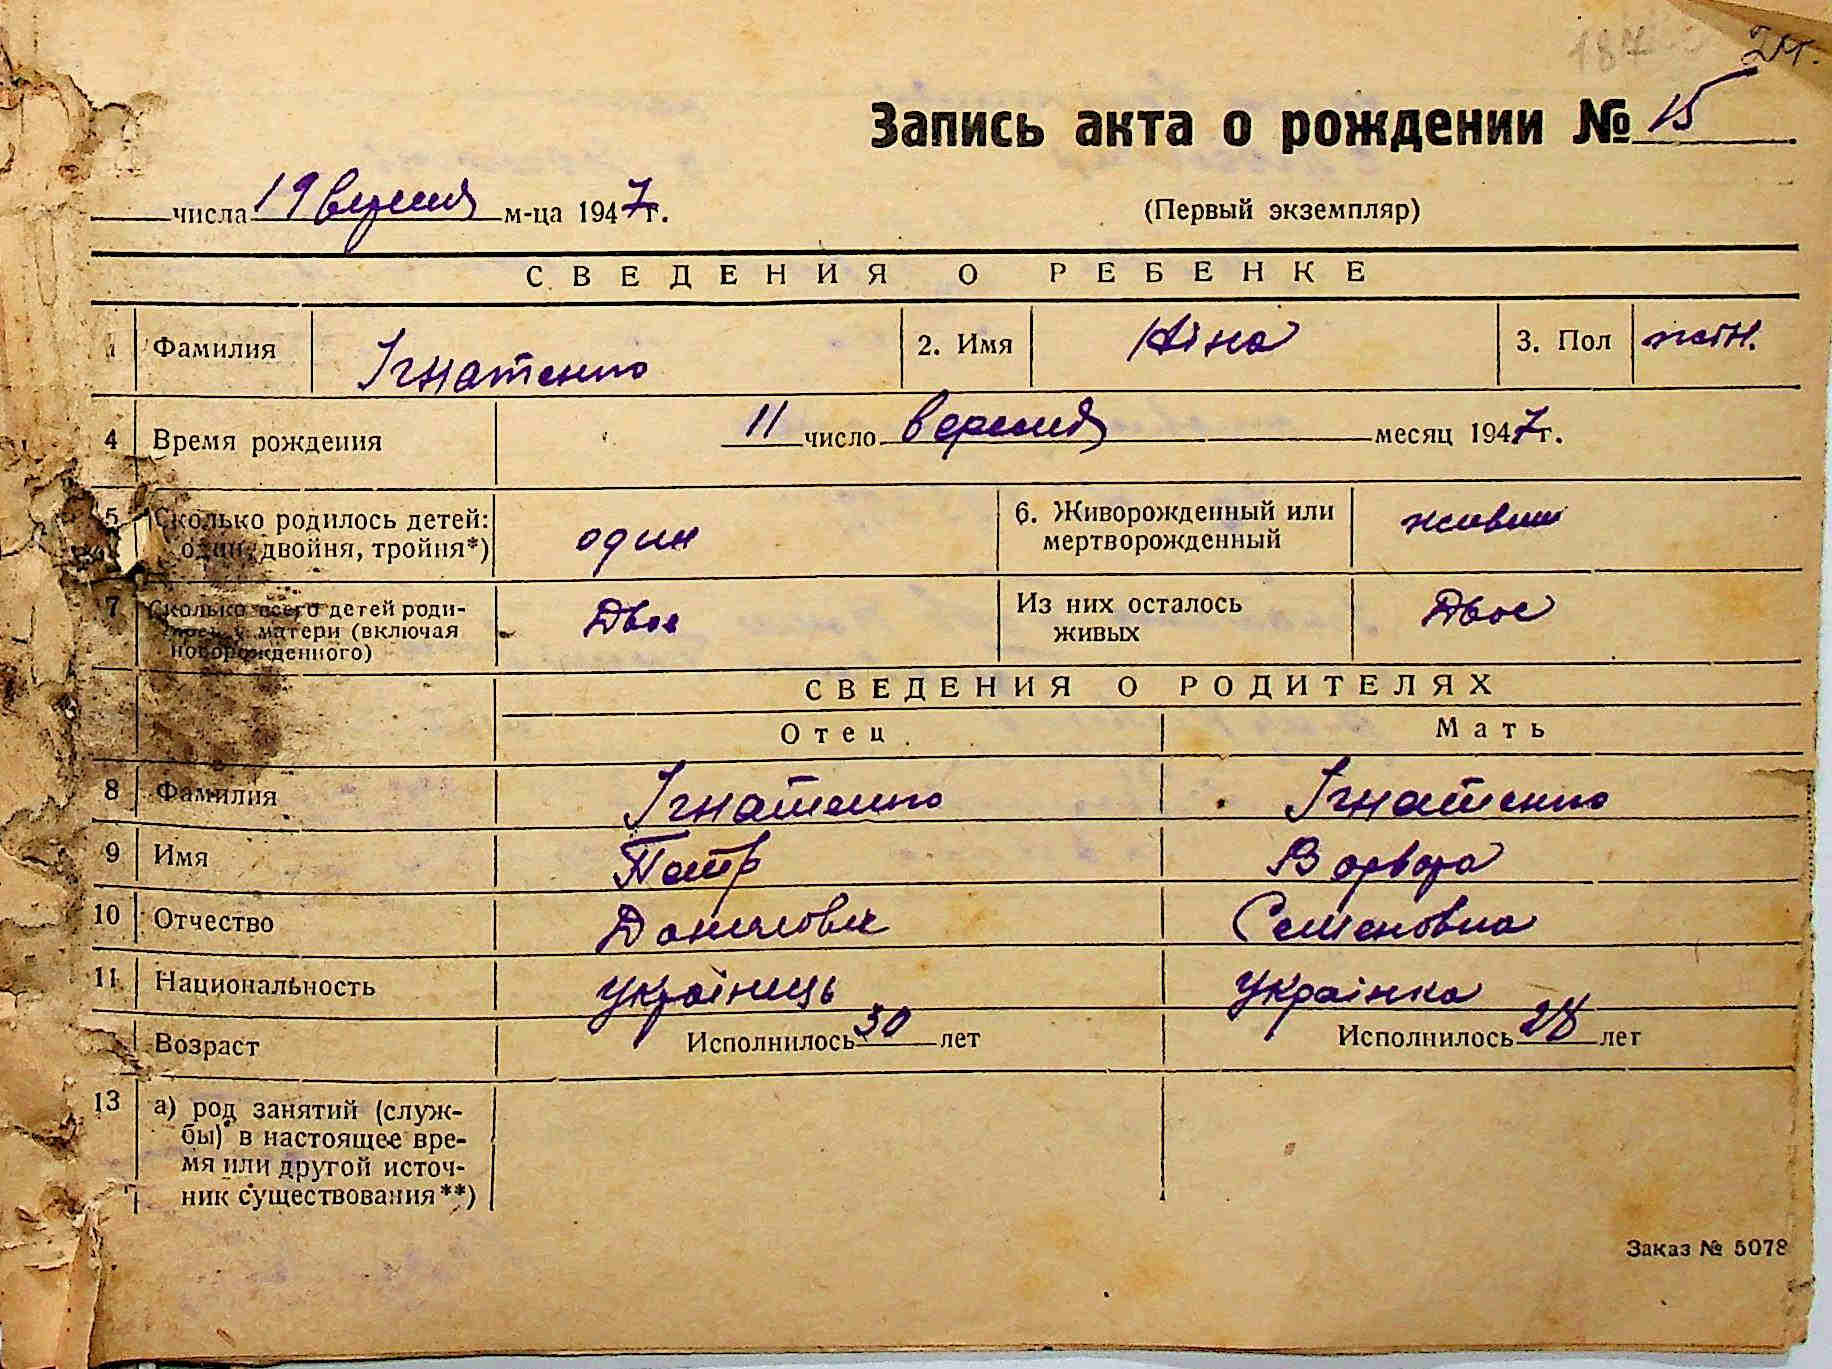 24.
Запись акта о рождении № 15
числа 19 вересня м-ца 1947г. (Первый экземпляр)
СВЕДЕНИЯ О РЕБЕНКЕ
1 Фамилия Ігнатенко 2. Имя Ніна 3. Пол жін.
4 Время рождения 11 число вересня месяц 1947г.
5 Сколько родилось детей: 6. Живорожденный или
один, двойня, тройня*) один мертворожденный живим
7 Сколько всего детей роди- Из них осталось
лось у матери (включая Двое живых Двое
новорожденного)
СВЕДЕНИЯ О РОДИТЕЛЯХ
Отец Мать
8 Фамилия Ігнатенко Ігнатенко
9 Имя Петр Варвара
10 Отчество Данилович Семеновна
11 Национальность українець українка
Возраст Исполнилось 30 лет Исполнилось 28 лет
13 а) род занятий (служ-
бы) в настоящее вре-
мя или другой источ-
ник существования**)
Заказ № 5078